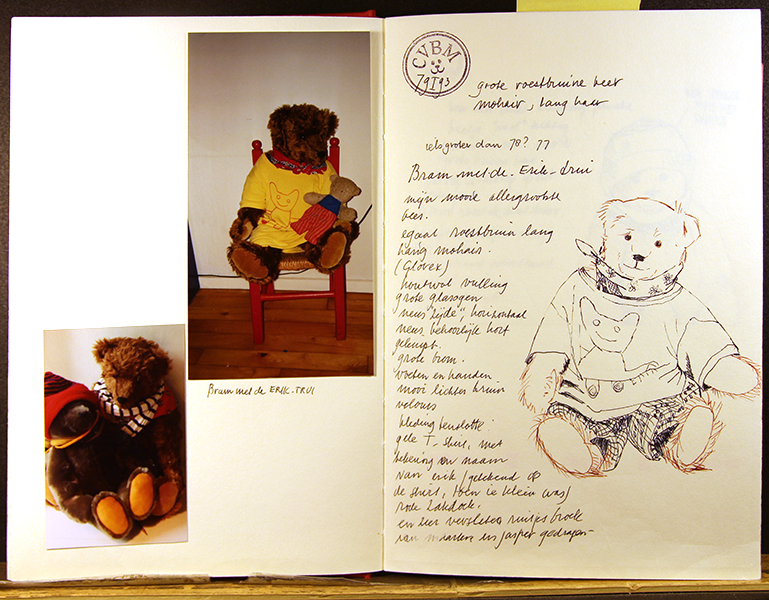 CVBM
79193
grote roestbruine beer
mohair, lang haar
iets groter dan 78? 77
Bram met de - Erik - trui
mijn mooie allergrootste
beer.
egaal roestbruin lang
harig mohair.
houtwol vulling
grote glasogen
neus "zijde", horizontaal
neus behoorlijk kort
geknipt.
grote brom.
voeten en handen
mooi lichter bruin
velours
kleding tenslotte:
gele T-shirt, met
tekening en naam
van erik (getekend op
de shirt, toen ie klein was)
rode zakdoek,
en zeer versleten ruitjes broek
van maarten en jasper gedragen -
Bram met de ERIK-TRUI